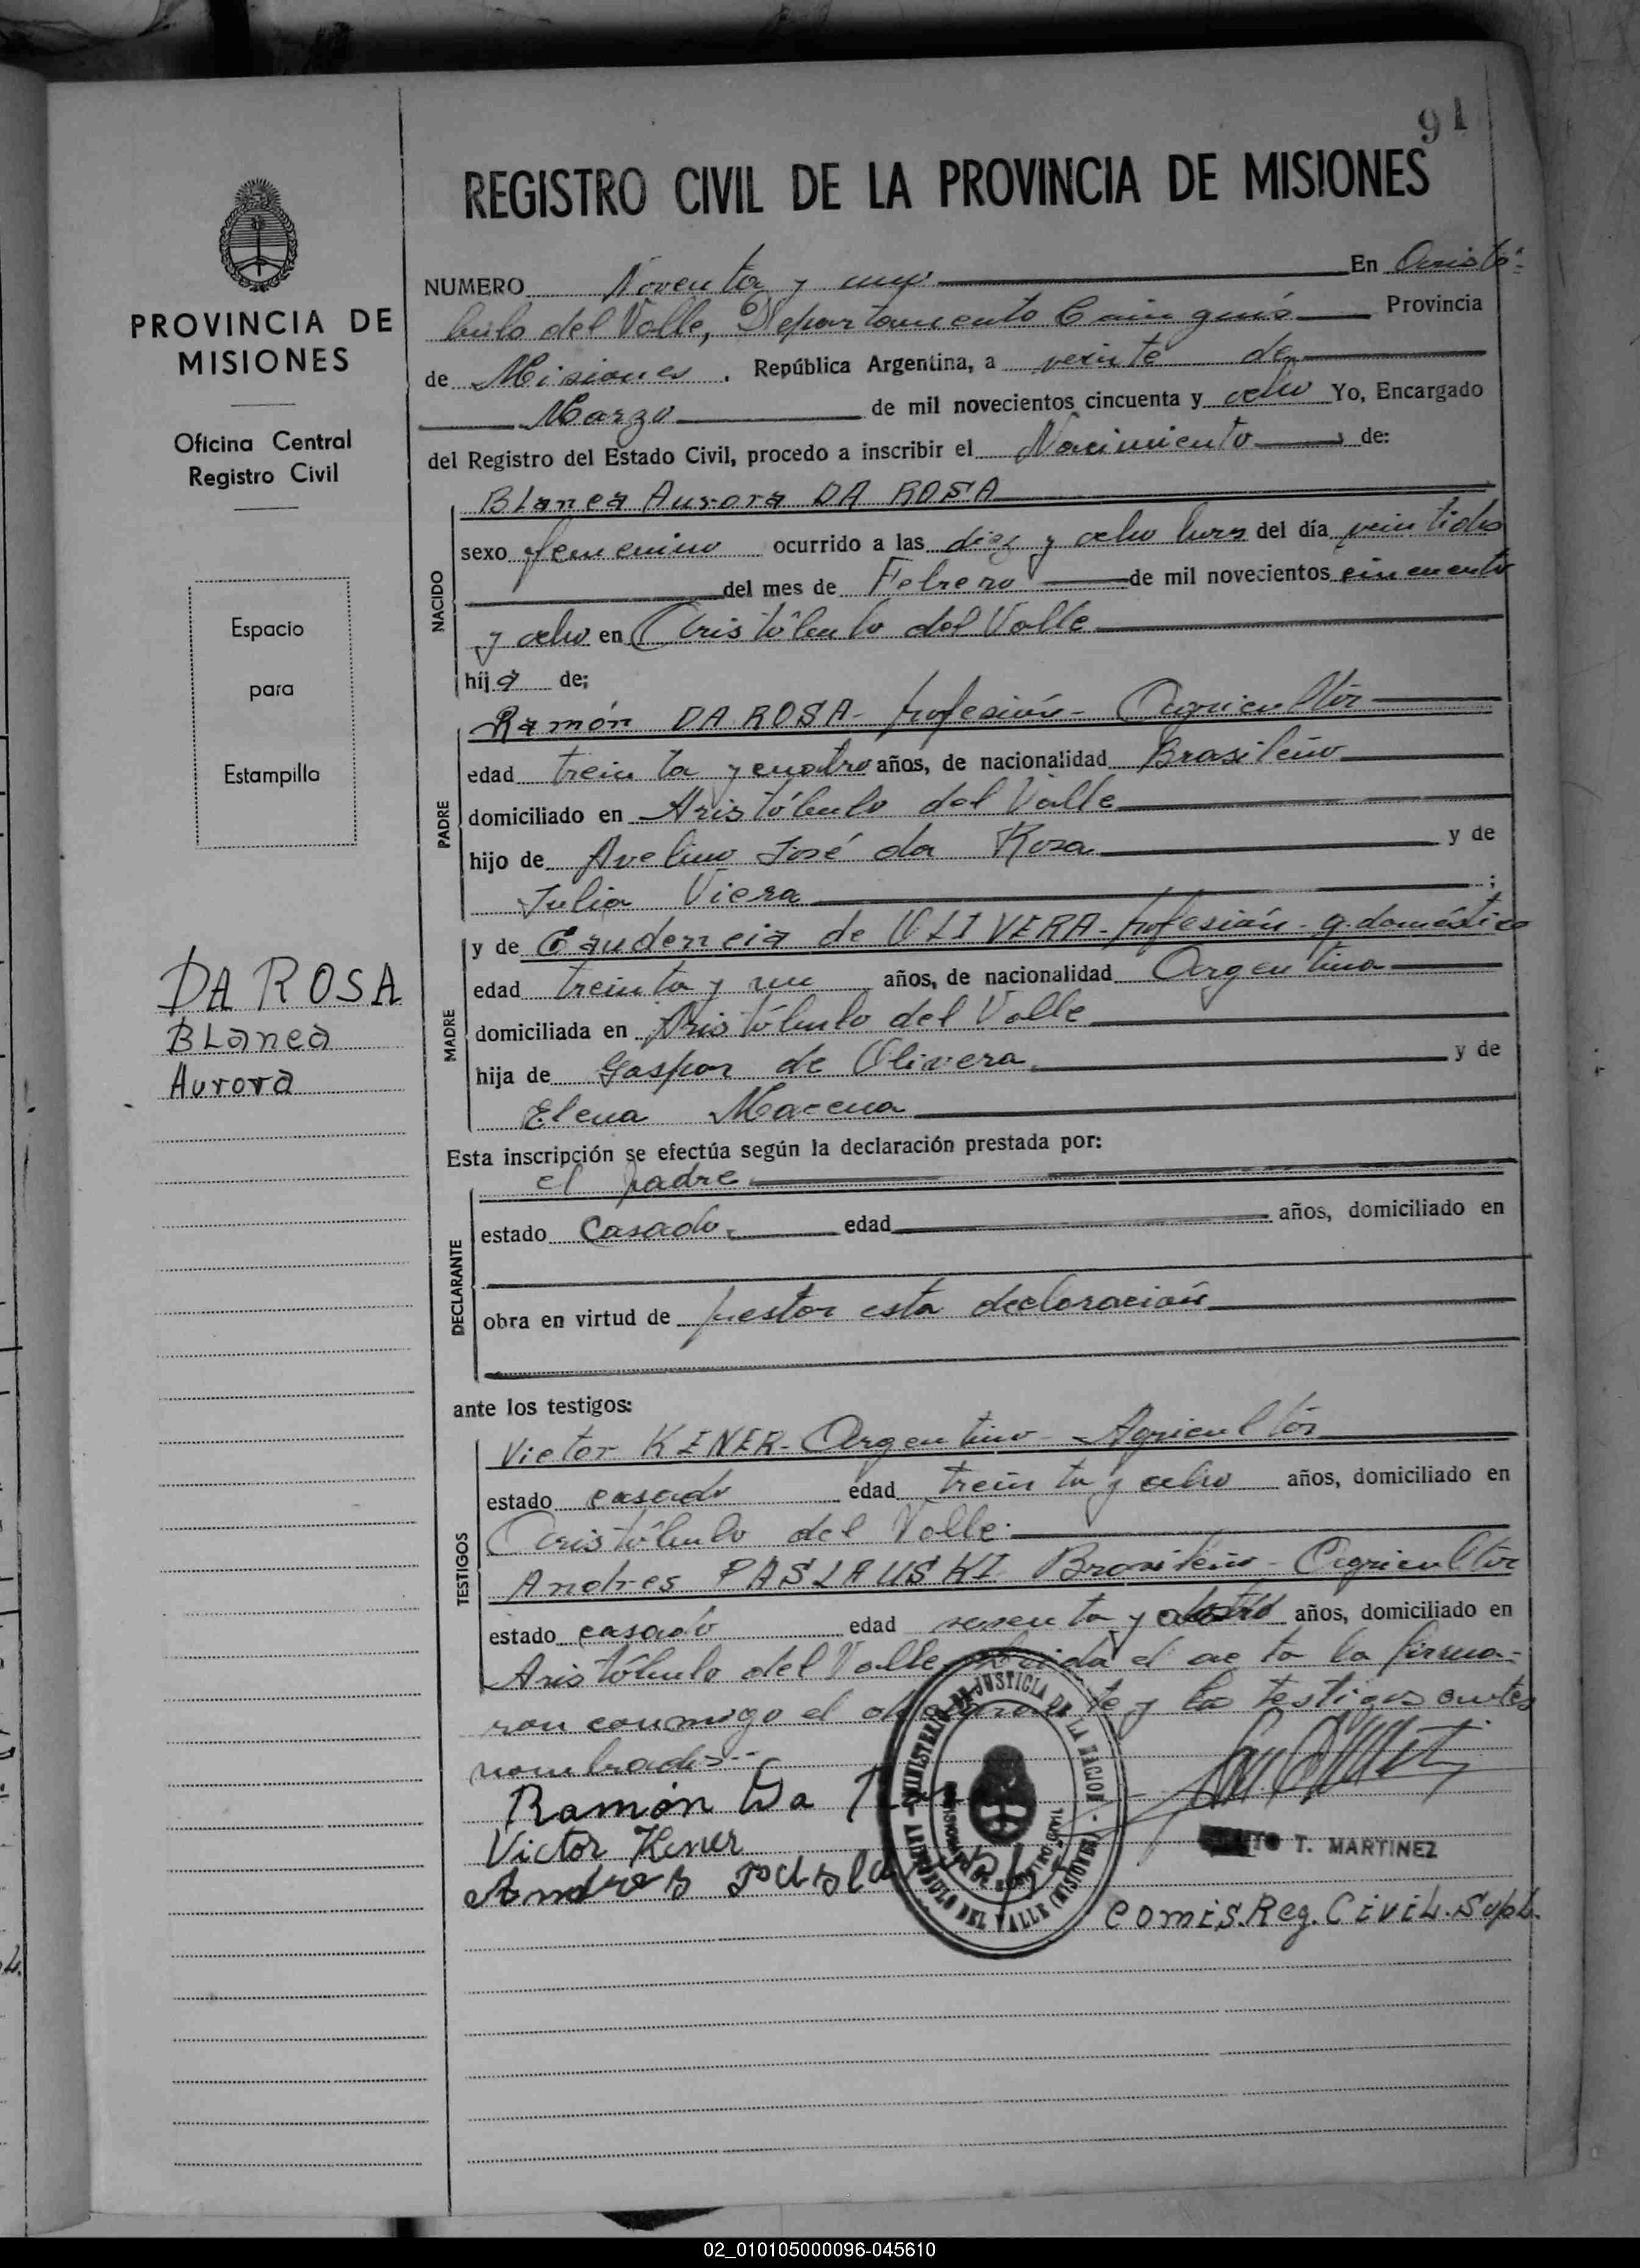 91
REGISTRO CIVIL DE LA PROVINCIA DE MISIONES
PROVINCIA DE
MISIONES
Oficina Central
Registro Civil
Espacio
para
Estampilla
DA ROSA
Blanca
Aurora
NUMERO Noventa y uno En Aristó-
bulo del Valle, Departamento Cainguás Provincia
de Misiones, República Argentina, a veinte de
Marzo de mil novecientos cincuenta y ocho Yo, Encargado
del Registro del Estado Civil, procedo a inscribir el Nacimiento de:
NACIDO
Blanca Aurora DA ROSA
sexo femenino ocurrido a las diez y ocho hors del día veintidos
del mes de Febrero de mil novecientos cincuenta
y ocho en Aristóbulo del Valle
hija de;
PADRE
Ramón DA ROSA - profesión - Agricultór
edad treinta y cuatro años, de nacionalidad Brasileño
domiciliado en Aristóbulo del Valle
hijo de Avelino José da Rosa y de
Julia Viera ;
MADRE
y de Caudencia de OLIVERA - profesión - q. doméstico
edad treinta y un años, de nacionalidad Argentina
domiciliada en Aristóbulo del Valle
hija de Gaspar de Olivera y de
Elena Macena
Esta inscripción se efectúa según la declaración prestada por:
DECLARANTE
el padre
estado Casado. edad años, domiciliado en
obra en virtud de prestar esta declaración
ante los testigos:
TESTIGOS
Victor KENER - Argentino - Agricultór
estado casado edad treinta y ocho años, domiciliado en
Aristóbulo del Valle.
Andres PASLAUSKI Brasileño - Agricultór
estado casado edad sesenta y años, domiciliado en
Aristóbulo del Valle. Leida el acta la firma-
ron conmigo el declarante y los testigos antes
nombrados --
Ramón Da
Victor Kener
Andres
MINISTERIO DE JUSTICIA DE LA NACION
ARISTOBULO DEL VALLE (MISIONES)
T. MARTINEZ
Comis. Reg. Civil. Supl.
02_010105000096-045610